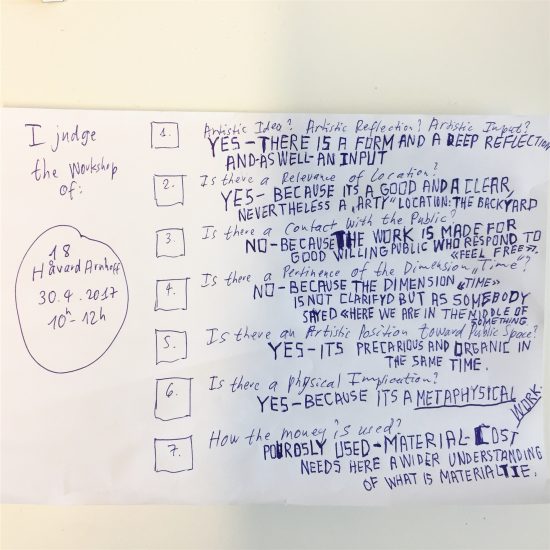 I judge
the Workshop
of:
18
Håvard Arnhoff
30.4.2017
10h - 12h
1. Artistic Idea? Artistic Reflection? Artistic Input?
YES - THERE IS A FORM AND A DEEP REFLECTION
AND AS WELL - AN INPUT
2. Is there a Relevance of Location?
YES - BECAUSE ITS A GOOD AND A CLEAR,
NEVERTHELESS A „ARTY" LOCATION: THE BACKYARD
3. Is there a Contact with the Public?
NO - BECAUSE THE WORK IS MADE FOR
GOOD WILLING PUBLIC WHO RESPOND TO
«FEEL FREE».
4. Is there a Pertinence of the Dimension „Time"?
NO - BECAUSE THE DIMENSION «TIME»
IS NOT CLARIFYD BUT AS SOMEBODY
SAYED «HERE WE ARE IN THE MIDDLE OF
SOMETHING
5. Is there an Artistic Position toward Public Space?
YES - ITS PRECARIOUS AND ORGANIC IN
THE SAME TIME.
6. Is there a physical Implication?
YES - BECAUSE ITS A METAPHYSICAL
WORK.
7. How the money is used?
POUROSLY USED - MATERIAL-COST
NEEDS HERE A WIDER UNDERSTANDING
OF WHAT IS MATERIALTIE.